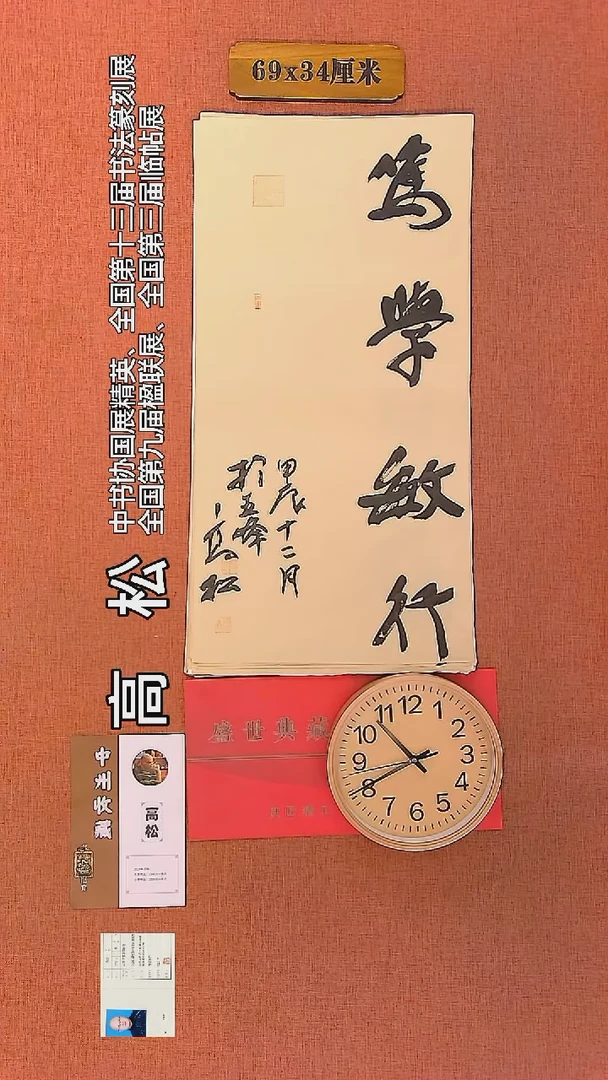 69x34厘米
篤學敏行
甲辰十二月
於五峰
高松
中书协国展精英、全国第十三届书法篆刻展
全国第九届楹联展、全国第三届临帖展
高 松
盛世典藏
12
1
2
3
4
5
6
7
8
9
10
11
高松